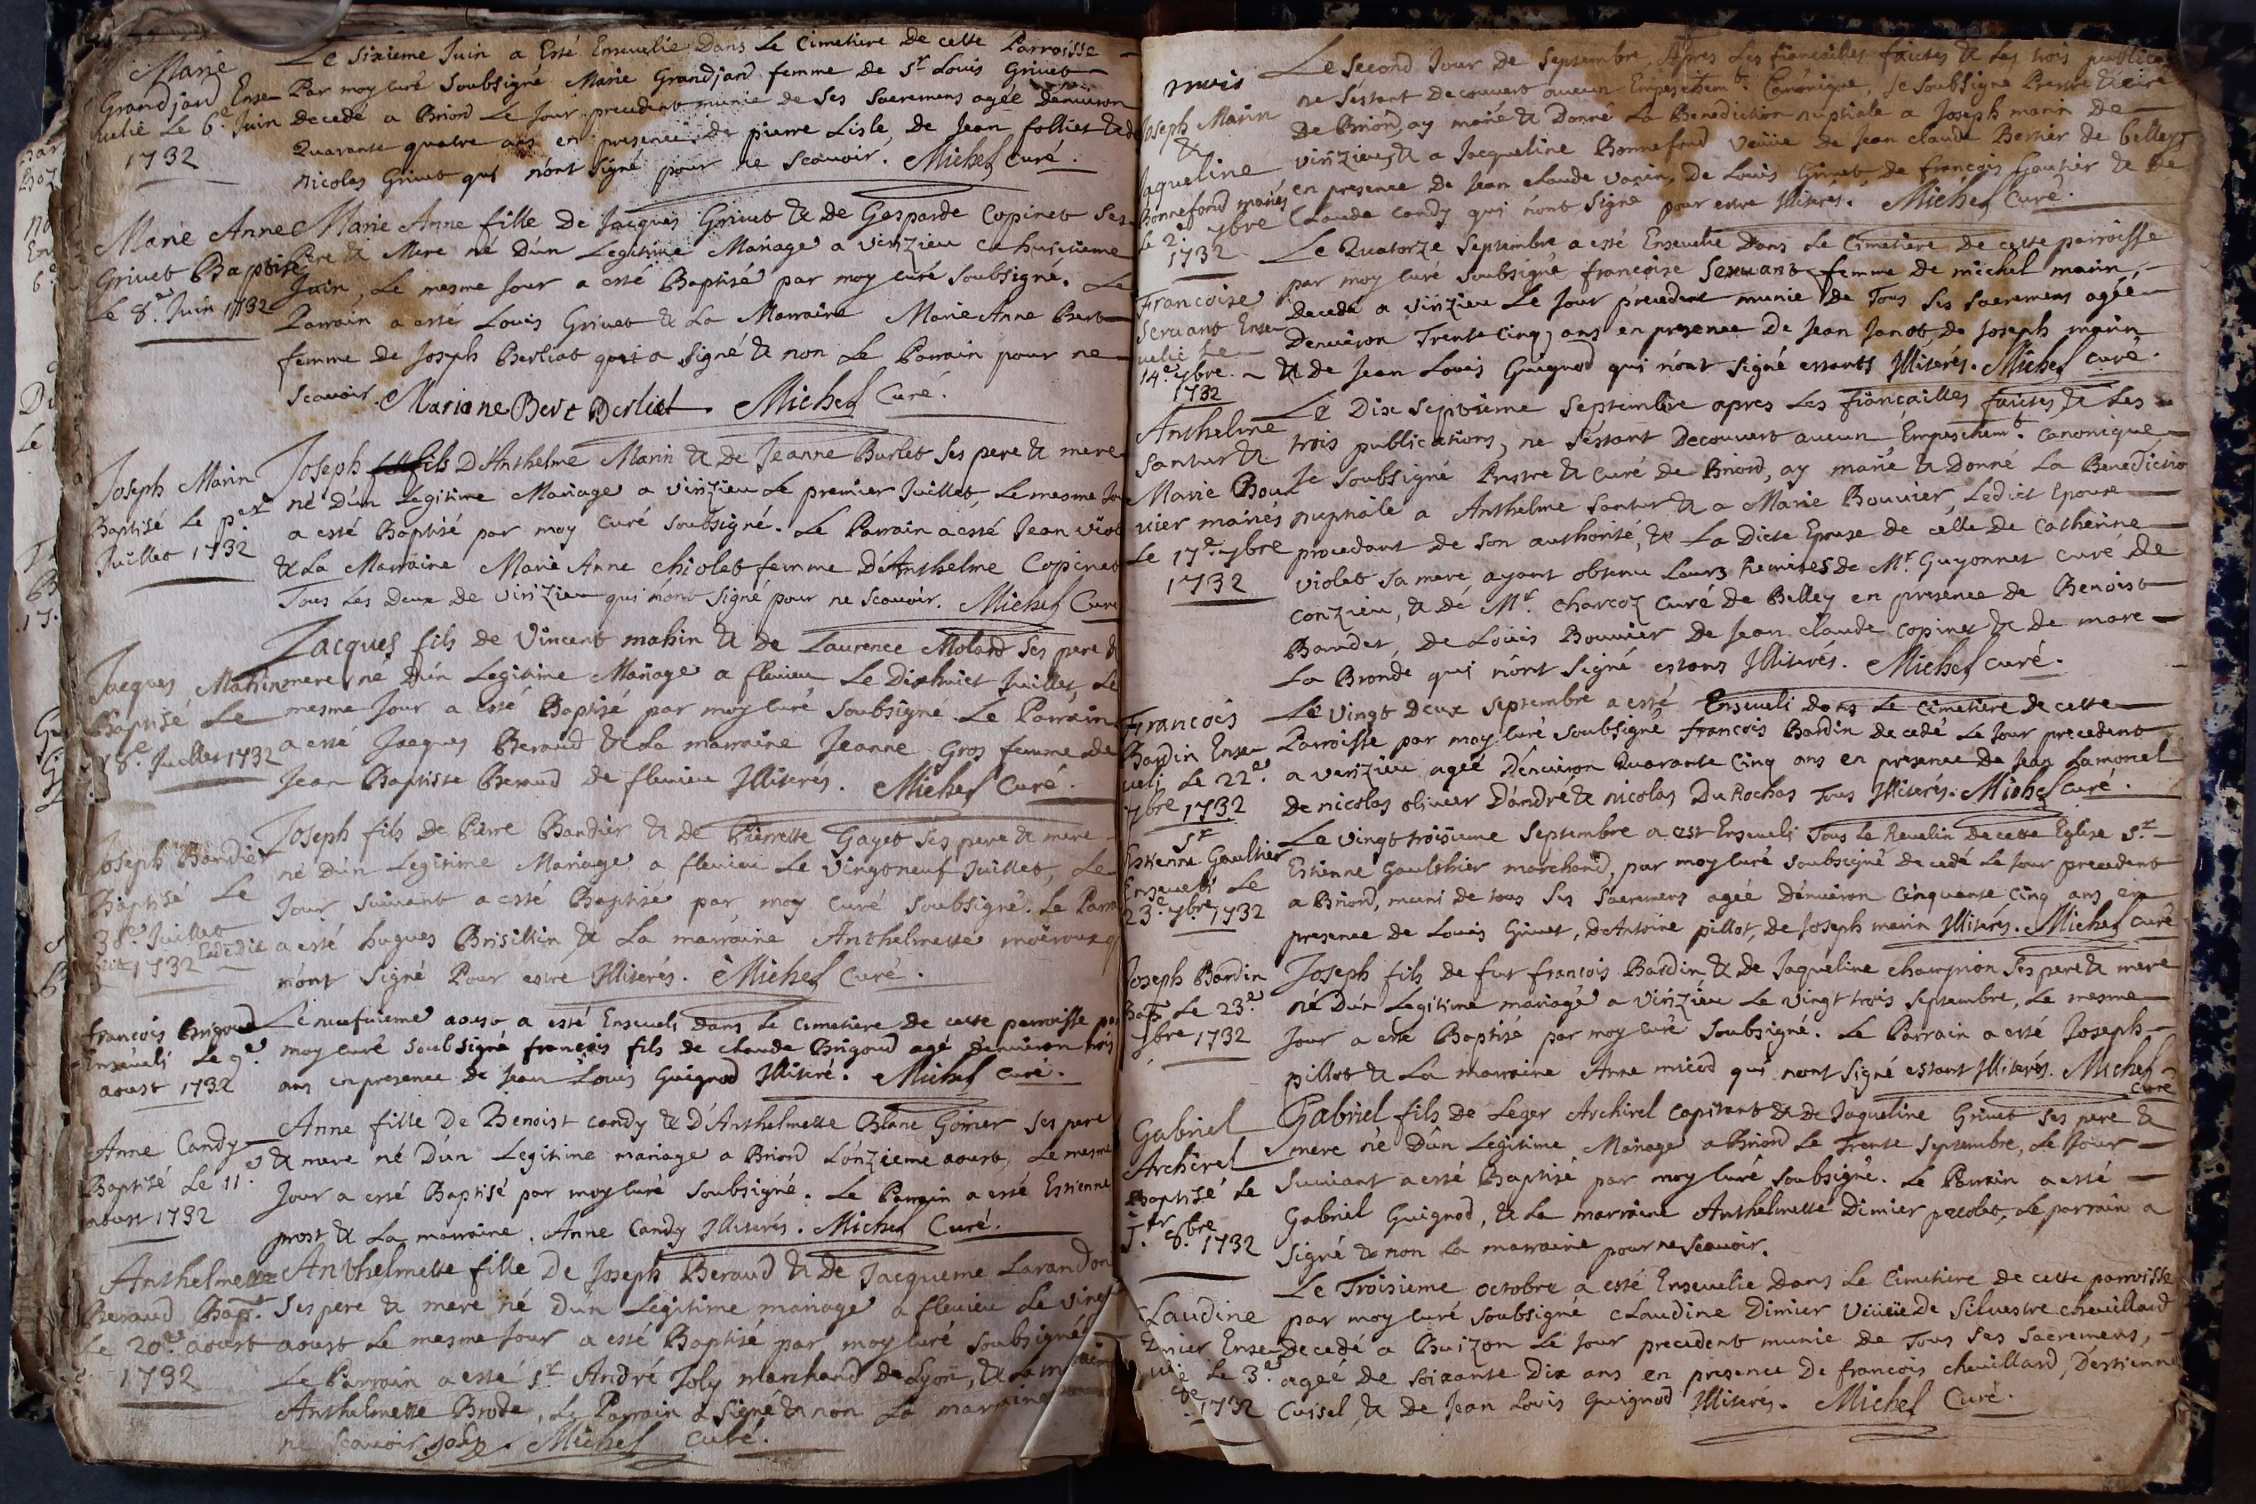 Marie
Grandjand Ense
uelie Le 6.e Juin
1732
Le sixieme Juin a Esté Enseuelie Dans Le Cimetiere De cette Parroisse
Par moy Curé Soubsigné Marie Grandjand femme de Sr Louis Griuet
Decedé a Briord Le Jour precedent munie de Ses Sacremens agée denuiron
Quarante quatre ans en presence de pierre Lisle, de Jean folliet & de
nicolas Griuet qui n'ont Signé pour ne Scauoir. Michel Curé.
Marie Anne
Griuet Baptisé
Le 8.e Juin 1732
Marie Anne fille De Jacques Griuet & de Gasparde Copinet Ses
Pere & Mere né D'un Legitime Mariage a Virizieu Le huictieme
Juin, Le mesme Jour a esté Baptisé par moy Curé Soubsigné. Le
Parrain a esté Louis Griuet & La Marraine Marie Anne Bert
femme de Joseph Berliat qui a Signé & non Le Parrain pour ne
Scauoir. Mariane Bert Berliet. Michel Curé.
Joseph Marin
Baptisé Le p.er
Juillet 1732
Joseph fils D'Anthelme Marin & de Jeanne Burlet Ses pere & mere
né D'un Legitime Mariage a Virizieu Le premier Juillet Le mesme Jou
a esté Baptisé par moy Curé Soubsigné. Le Parrain a esté Jean Viol
& La Marraine Marie Anne chiolet femme D'Anthelme Copinet
Tous Les Deux de Virizieu qui n'ont Signé pour ne Scauoir. Michel Curé
Jacques Mahin
Baptisé Le
18.e Juillet 1732
Jacques fils de Vincent mahin & de Laurence Molard Ses pere &
mere né D'un Legitime Mariage a fleuieu Le Dixhuict Juillet, Le
mesme Jour a esté Baptisé par moy Curé Soubsigné. Le Parrain
a esté Jacques Beraud & La marraine Jeanne Gros femme de
Jean Baptiste Beraud de fleuieu Illiterés. Michel Curé.
Joseph Bandier
Baptisé Le
30.e Juillet
1732
Joseph fils de Pierre Bandier & de Pierrette Gayet Ses pere & mere
né D'un Legitime Mariage a fleuieu Le Vingtneuf Juillet, Le
Jour Suiuant a esté Baptisé par moy Curé Soubsigné. Le Parra
a esté hugues Brisillin & La marraine Anthelmette
n'ont Signé Pour estre Illiterés. Michel Curé.
francois Brigoud
Enseueli Le 9.e
aoust 1732
Le neufuieme aoust a esté Enseueli Dans Le Cimetiere de cette parroisse par
moy Curé Soubsigné francois fils de claude Brigoud agé denuiron trois
ans en presence de Jean Louis Guignod Illiteré. Michel Curé.
Anne Candy
Baptisé Le 11.e
aoust 1732
Anne fille De Benoist Candy & D'Anthelmette Blanc Gonier Ses pere
& mere né D'un Legitime mariage a Briord L'onzieme aoust, Le mesme
Jour a esté Baptisé par moy Curé Soubsigné. Le Parrain a esté Estienne
prost & La marraine Anne Candy Illiterés. Michel Curé.
Anthelmette
Beraud Bap.
Le 20.e aoust
1732
Anthelmette fille De Joseph Beraud & De Jacqueme Larandon
Ses pere & mere né D'un Legitime mariage a fleuieu Le Vingt
aoust Le mesme Jour a esté Baptisé par moy Curé Soubsigné
Le Parrain a esté Sr André Joly marchand de Lyon, & La marraine
Anthelmette Brode, Le Parrain a Signé & non La marraine
ne Scauoir Joly. Michel Curé.
Joseph Marin
&
Jaqueline
Bonnefond mariés
Le 2.e 7bre
1732
Le Second Jour de Septembre, Apres Les fiancailles faictes & Les trois publica
ne S'estant Decouuert aucun Empeschem.t Canonique, Je Soubsigné Prestre & curé
De Briord, ay marié & Donné La Benediction nuptiale a Joseph marin De
Virizieu, & a Jacqueline Bonnefond Veüue de Jean claude Bernier de belley
en presence de Jean claude Vanin, De Louis Griuet, de francois Gautier & de
Claude Candy qui n'ont Signé pour estre Illiterés. Michel Curé.
Francoise
Seruant Ense
uelie Le
14.e 7bre
1732
Le Quatorze Septembre a esté Enseuelie Dans Le Cimetiere De cette parroisse
par moy Curé Soubsigné francoise Seruant femme De michel marin,
Decedé a Virizieu Le Jour precedent munie De Tous Ses Sacremens agée
Denuiron Trente Cinq ans en presence De Jean Janot, De Joseph marin
& de Jean Louis Guignod qui n'ont Signé estants Illiterés. Michel Curé.
Anthelme
Santur &
Marie Bou
uier mariés
Le 17.e 7bre
1732
Le Dix Septieme Septembre apres Les fiancailles faictes & Les
trois publications, ne S'estant Decouuert aucun Empeschem.t Canonique,
Je Soubsigné Prestre & Curé de Briord, ay marié & Donné La Benedictio
nuptiale a Anthelme Santur & a Marie Bouuier, Ledict Epoux
procedant de Son authorité, & La Dicte Epouse de celle de Catherine
Violet Sa mere ayant obtenu Leurs Remises de Mr. Guyonnet Curé de
Conzieu, & de Mr. Charcoz Curé de Belley en presence de Benoist
Baudet, De Louis Bouuier De Jean claude Copinet & de marc
La Bronde qui n'ont Signé estans Illiterés. Michel Curé.
Francois
Bardin Ense
ueli Le 22.e
7bre 1732
Le Vingt Deux Septembre a esté Enseueli Dans Le Cimetiere de cette
Parroisse par moy Curé Soubsigné francois Bardin decedé Le Jour precedent
a Virizieu, agée Denuiron Quarante Cinq ans en presence de Jean Lamorel
de nicolas oliuier D'andré & nicolas Du Rochas Tous Illiterés. Michel Curé.
Sr
Estienne Gaulthier
Enseueli Le
23.e 7bre 1732
Le Vingt troisieme Septembre a est Enseueli Sous Le Reuelin de cette Eglise Sr
Estienne Gaulthier marchand, par moy Curé Soubsigné decedé Le Jour precedent
a Briord, muni de tous Ses Sacremens agée Denuiron Cinquante Cinq ans en
presence de Louis Griuet, D'Antoine pillot, de Joseph marin Illiterés. Michel Curé
Joseph Bardin
Bap. Le 23.e
7bre 1732
Joseph fils de feu francois Bardin & de Jaqueline champion Ses pere & mere
né D'un Legitime mariage a Virizieu Le Vingt trois Septembre, Le mesme
Jour a esté Baptisé par moy Curé Soubsigné. Le Parrain a esté Joseph
pillot & La marraine Anne micod qui n'ont Signé estant Illiterés. Michel
Curé
Gabriel
Archirel
Baptisé Le
1.er 8.bre 1732
Gabriel fils de Leger Archirel Capitant & de Jaqueline Griuet Ses pere &
mere né D'un Legitime Mariage a Briord Le Trente Septembre, Le Jour
Suiuant a esté Baptisé par moy Curé Soubsigné. Le Parrain a esté
Gabriel Guignod, & La marraine Anthelmette Dimier Le parrain a
Signé & non La marraine pour ne Scauoir.
Claudine
Dimier Enseue
Le 3.e
1732
Le Troisieme octobre a esté Enseuelie Dans Le Cimetiere De cette parroisse
par moy Curé Soubsigné Claudine Dimier Veüue De Siluestre cheuillard
Decedé a Buizon Le Jour precedent munie de Tous Ses Sacremens,
agée de Soixante Dix ans en presence De francois cheuillard, D'estienne
Cussel, & De Jean Louis Guignod Illiterés. Michel Curé.